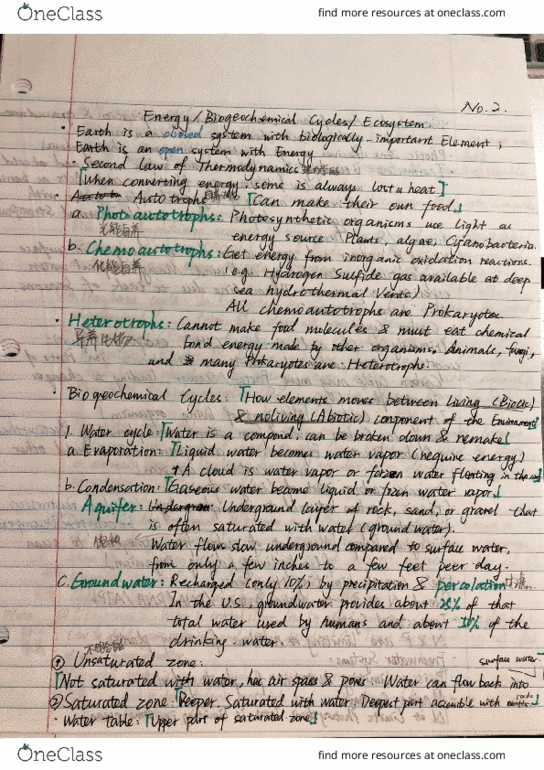 OneClass
find more resources at oneclass.com
No. 2.
Energy / Biogeochemical Cycles / Ecosystem.
· Earth is a closed system with biologically-important Element,
Earth is an open system with Energy
· Second law of Thermodynamics
「When converting energy, some is always lost as heat」
· Autotrophs 「Can make their own food」
a. Photoautotrophs: Photosynthetic organisms use light as
光能自养 energy source. Plants, algae, Cyanobacteria.
b. Chemoautotrophs: Get energy from inorganic oxidation reactions.
化能自养 (e.g. Hydrogen Sulfide gas available at deep
sea hydrothermal Vents)
All chemoautotrophs are Prokaryotes
· Heterotrophs: Cannot make food molecules & must eat chemical
bond energy made by other organisms. Animals, fungi,
and many Prokaryotes are Heterotrophs.
· Biogeochemical Cycles: 「How elements moves between Living (Biotic)
& noliving (Abiotic) component of the Environment」
1. Water cycle:「Water is a compond, can be broken down & remake」
a. Evaporation:「Liquid water becomes water vapor (require energy)
A cloud is water vapor or frozen water floating in the
b. Condensation:「Gaseous water become liquid or frozen water vapor」
Aquifer: Underground layer of rock, sand, or gravel that
is often saturated with water (ground water).
Water flow slow underground compared to surface water,
from only a few inches to a few feet peer day.
C. Groundwater: Recharged (only 10%) by precipitation & percolation
In the U.S. groundwater provides about 25% of that
total water used by humans and about % of the
drinking water.
① Unsaturated zone:
surface water.
「Not saturated with water, has air spaces & pores. Water can flow back into
② Saturated zone:「Deeper. Saturated with water. Deepest part with
rocks
· Water table:「Upper part of saturated zone」
OneClass
find more resources at oneclass.com